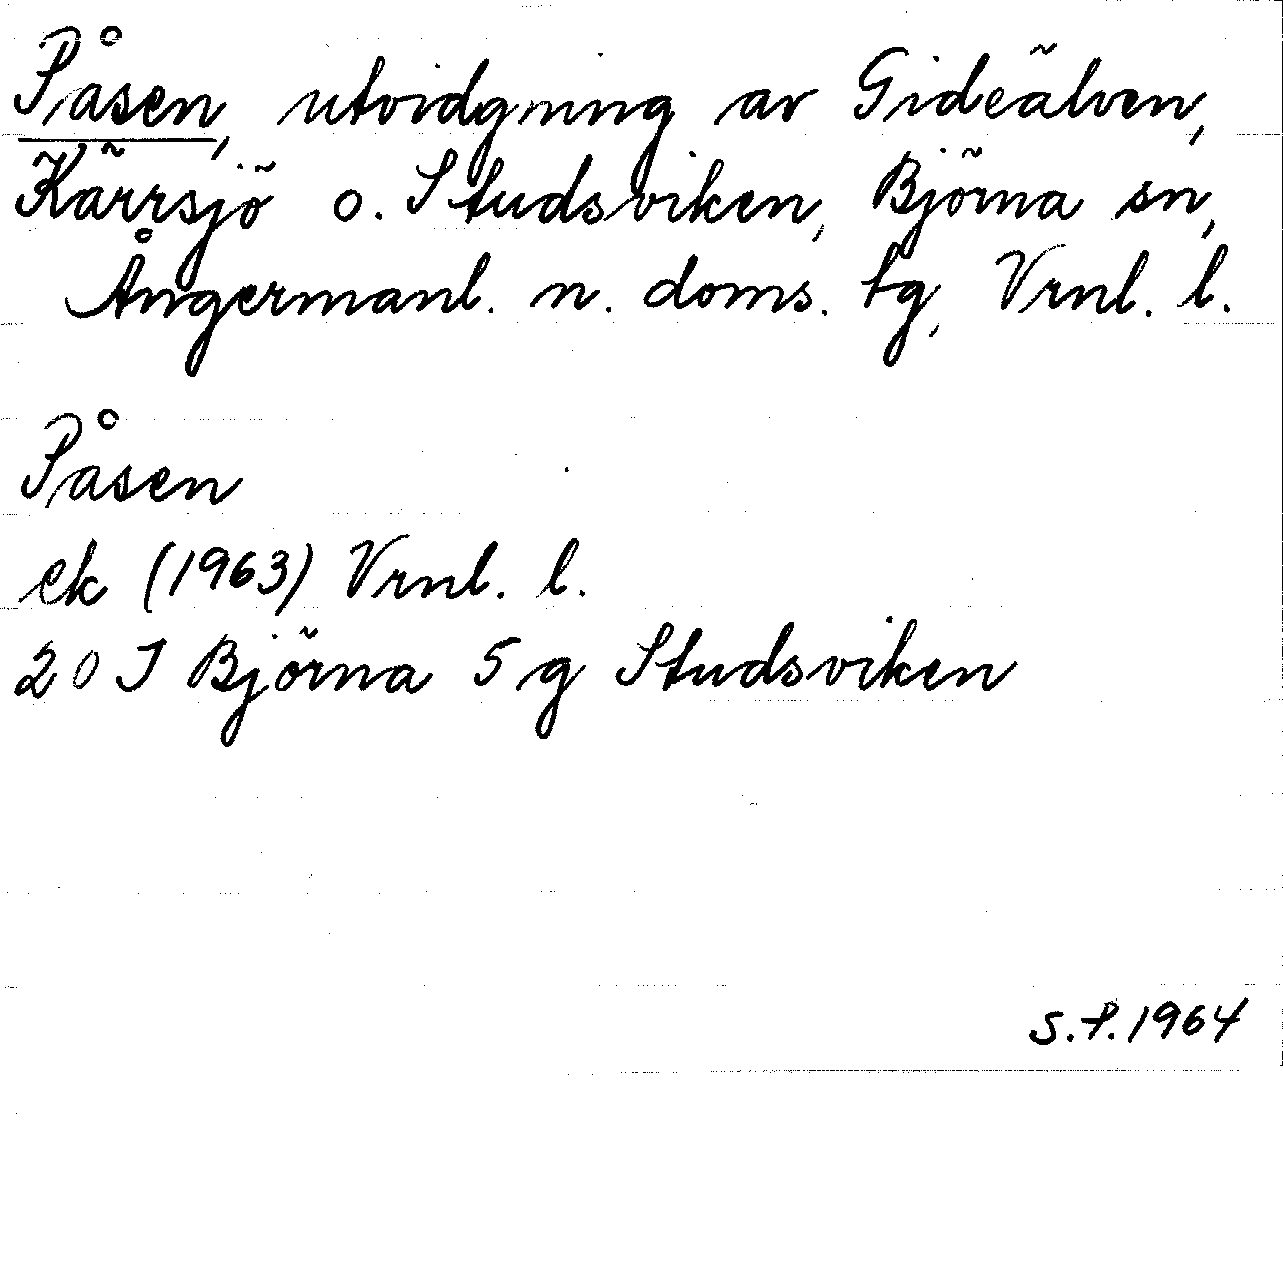 Påsen, utvidgning av Gideälven,
Kärrsjö o. Studsviken, Björna sn,
Ångermanl. n. doms. tg, Vrnl. l.
Påsen
ek (1963) Vrnl. l.
20 J Björna 5 g Studsviken
S.P. 1964